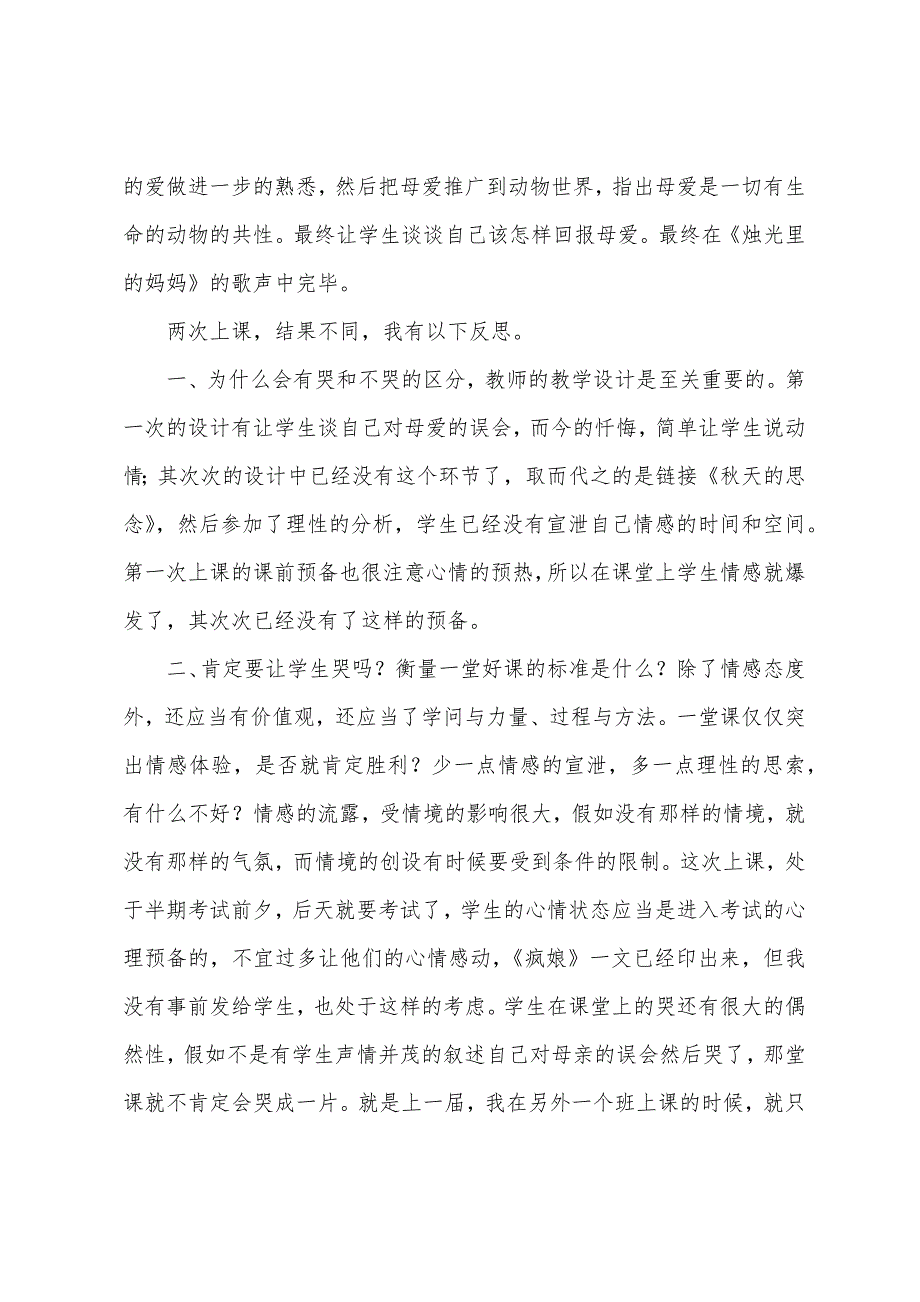 的爱做进一步的熟悉，然后把母爱推广到动物世界，指出母爱是一切有生
命的动物的共性。最终让学生谈谈自己该怎样回报母爱。最终在《烛光里
的妈妈》的歌声中完毕。
两次上课，结果不同，我有以下反思。
一、为什么会有哭和不哭的区分，教师的教学设计是至关重要的。第
一次的设计有让学生谈自己对母爱的误会，而今的忏悔，简单让学生说动
情；其次次的设计中已经没有这个环节了，取而代之的是链接《秋天的思
念》，然后参加了理性的分析，学生已经没有宣泄自己情感的时间和空间。
第一次上课的课前预备也很注意心情的预热，所以在课堂上学生情感就爆
发了，其次次已经没有了这样的预备。
二、肯定要让学生哭吗？衡量一堂好课的标准是什么？除了情感态度
外，还应当有价值观，还应当了学问与力量、过程与方法。一堂课仅仅突
出情感体验，是否就肯定胜利？少一点情感的宣泄，多一点理性的思索，
有什么不好？情感的流露，受情境的影响很大，假如没有那样的情境，就
没有那样的气氛，而情境的创设有时候要受到条件的限制。这次上课，处
于半期考试前夕，后天就要考试了，学生的心情状态应当是进入考试的心
理预备的，不宜过多让他们的心情感动，《疯娘》一文已经印出来，但我
没有事前发给学生，也处于这样的考虑。学生在课堂上的哭还有很大的偶
然性，假如不是有学生声情并茂的叙述自己对母亲的误会然后哭了，那堂
课就不肯定会哭成一片。就是上一届，我在另外一个班上课的时候，就只